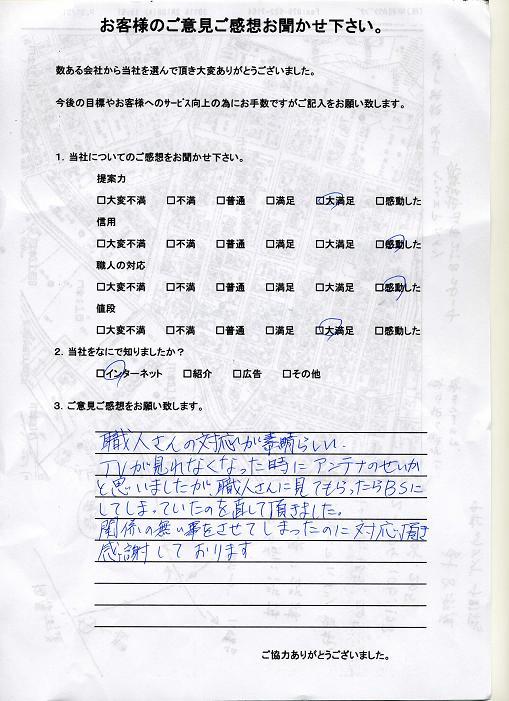 お客様のご意見ご感想お聞かせ下さい。
数ある会社から当社を選んで頂き大変ありがとうございました。
今後の目標やお客様へのサービス向上の為にお手数ですがご記入をお願い致します。
1．当社についてのご感想をお聞かせ下さい。
提案力
□大変不満 □不満 □普通 □満足 □大満足 □感動した
信用
□大変不満 □不満 □普通 □満足 □大満足 □感動した
職人の対応
□大変不満 □不満 □普通 □満足 □大満足 □感動した
値段
□大変不満 □不満 □普通 □満足 □大満足 □感動した
2．当社をなにで知りましたか？
□インターネット □紹介 □広告 □その他
3．ご意見ご感想をお願い致します。
職人さんの対応が素晴らしい。
TVが見れなくなった時にアンテナのせいか
と思いましたが職人さんに見てもらったらBSに
してしまっていたのを直して頂きました。
関係の無い事をさせてしまったのに対応頂き
感謝しております
ご協力ありがとうございました。